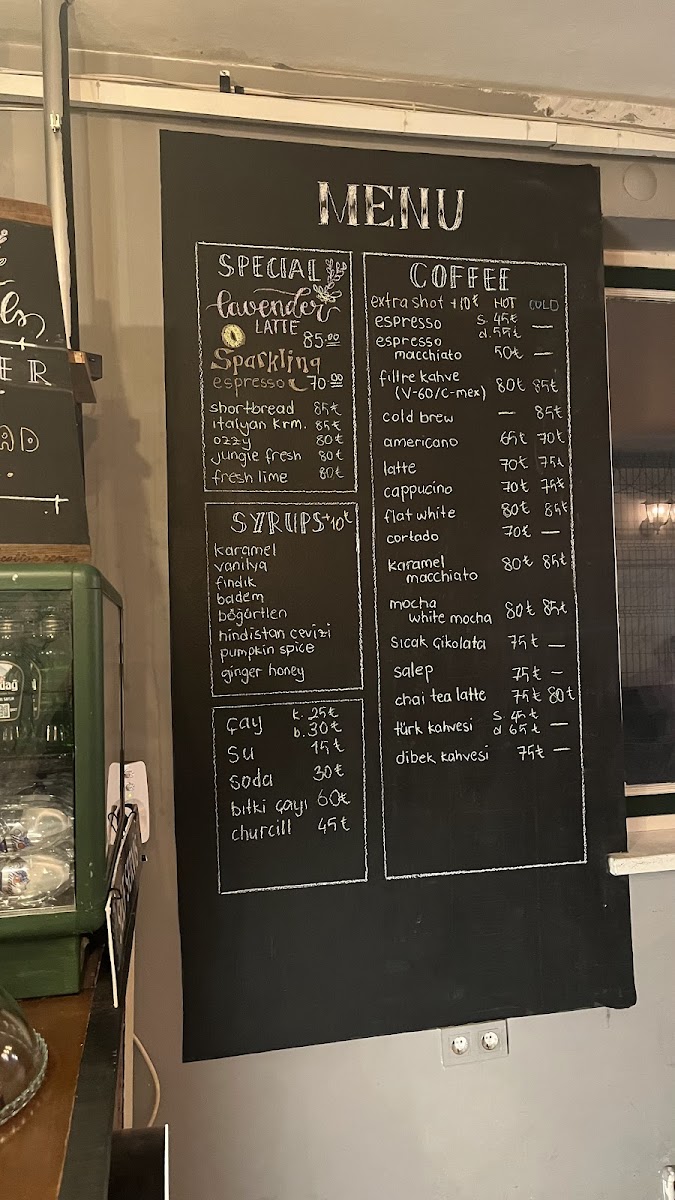 MENU
SPECIAL
lavender
LATTE
85.00
Sparkling
espresso 70.00
shortbread 85₺
italyan krm. 85₺
ozzy 80₺
jungle fresh 80₺
fresh lime 80₺
SYRUPS +10₺
karamel
vanilya
fındık
badem
böğürtlen
hindistan cevizi
pumpkin spice
ginger honey
çay k. 25₺
b. 30₺
su 15₺
soda 30₺
bitki çayı 60₺
churcill 45₺
COFFEE
extra shot +10₺ HOT COLD
espresso s. 45₺
d. 55₺ —
espresso
macchiato 50₺ —
fillre kahve
(V-60/C-mex) 80₺ 85₺
cold brew — 85₺
americano 65₺ 70₺
latte 70₺ 75₺
cappucino 70₺ 75₺
flat white 80₺ 85₺
cortado 70₺ —
karamel
macchiato 80₺ 85₺
mocha
white mocha 80₺ 85₺
sıcak çikolata 75₺ —
salep 75₺ —
chai tea latte 75₺ 80₺
türk kahvesi s. 45₺
d 65₺ —
dibek kahvesi 75₺ —